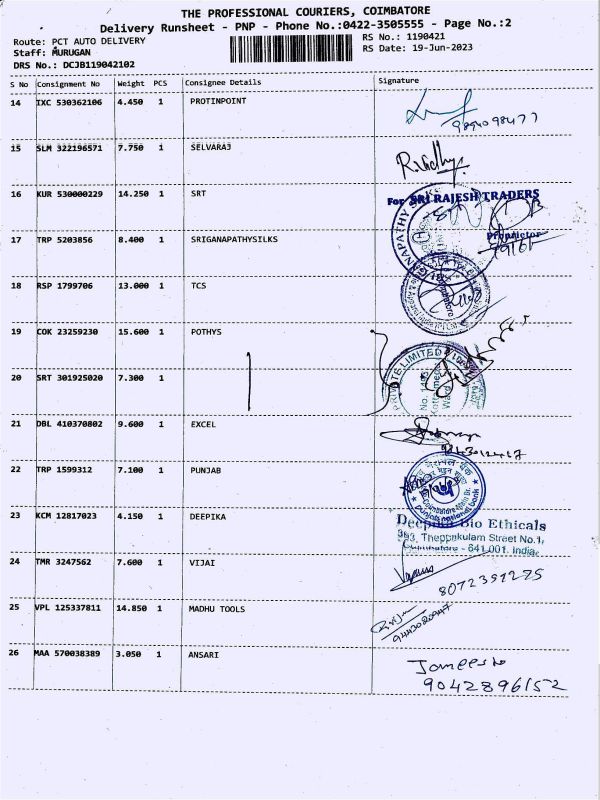 THE PROFESSIONAL COURIERS, COIMBATORE
Delivery Runsheet - PNP - Phone No.:0422-3505555 - Page No.:2
Route: PCT AUTO DELIVERY
Staff: MURUGAN
DRS No.: DCJB119042102
RS No.: 1190421
RS Date: 19-Jun-2023
S No Consignment No Weight PCS Consignee Details Signature
14 IXC 530362106 4.450 1 PROTINPOINT
9894098477
15 SLM 322196571 7.750 1 SELVARAJ
16 KUR 530000229 14.250 1 SRT
For SRI RAJESH TRADERS
Proprietor
17 TRP 5203856 8.400 1 SRIGANAPATHYSILKS
18 RSP 1799706 13.000 1 TCS
19 COK 23259230 15.600 1 POTHYS
PRIVATE LIMITED
20 SRT 301925020 7.300 1
21 DBL 410370802 9.600 1 EXCEL
22 TRP 1599312 7.100 1 PUNJAB
Punjab national bank
23 KCM 12817023 4.150 1 DEEPIKA
Deepika Bio Ethicals
393, Theppakulam Street No.1,
Coimbatore - 641 001. India.
24 TMR 3247562 7.600 1 VIJAI
8072391275
25 VPL 125337811 14.850 1 MADHU TOOLS
9443080947
26 MAA 570038389 3.050 1 ANSARI
9042896152